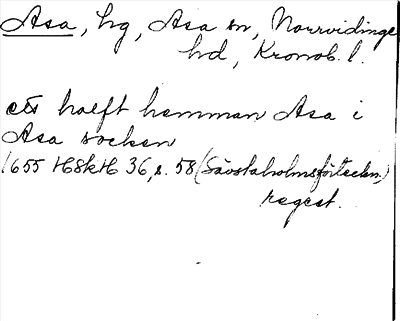 Asa, hg, Asa sn, Norrvidinge
hd, Kronob. l.
ett halft hemman Asa i
Asa socken
1655 HSkH 36, s. 58 (Sävstaholmsförteckn.)
regest.